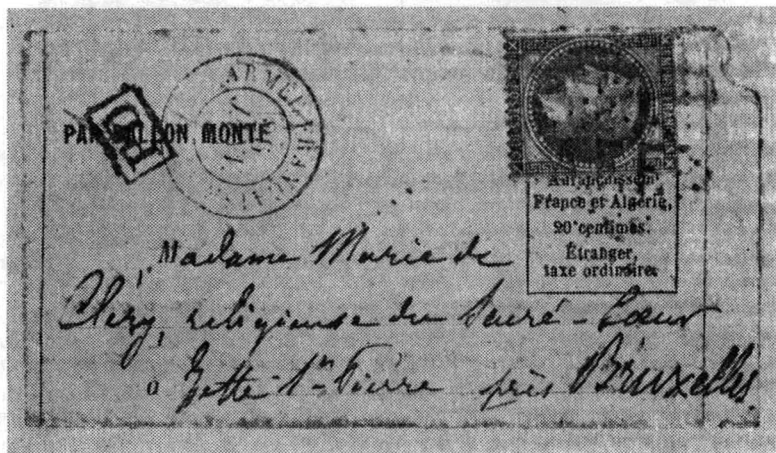 ARMÉE FRANÇAISE
PD
PAR BALLON MONTÉ
Affranchissem
France et Algérie,
20 centimes.
Étranger,
taxe ordinaire.
Madame Marie de
Cléry, religieuse du Sacré-Cœur
à Jette-St-Pierre près Bruxelles